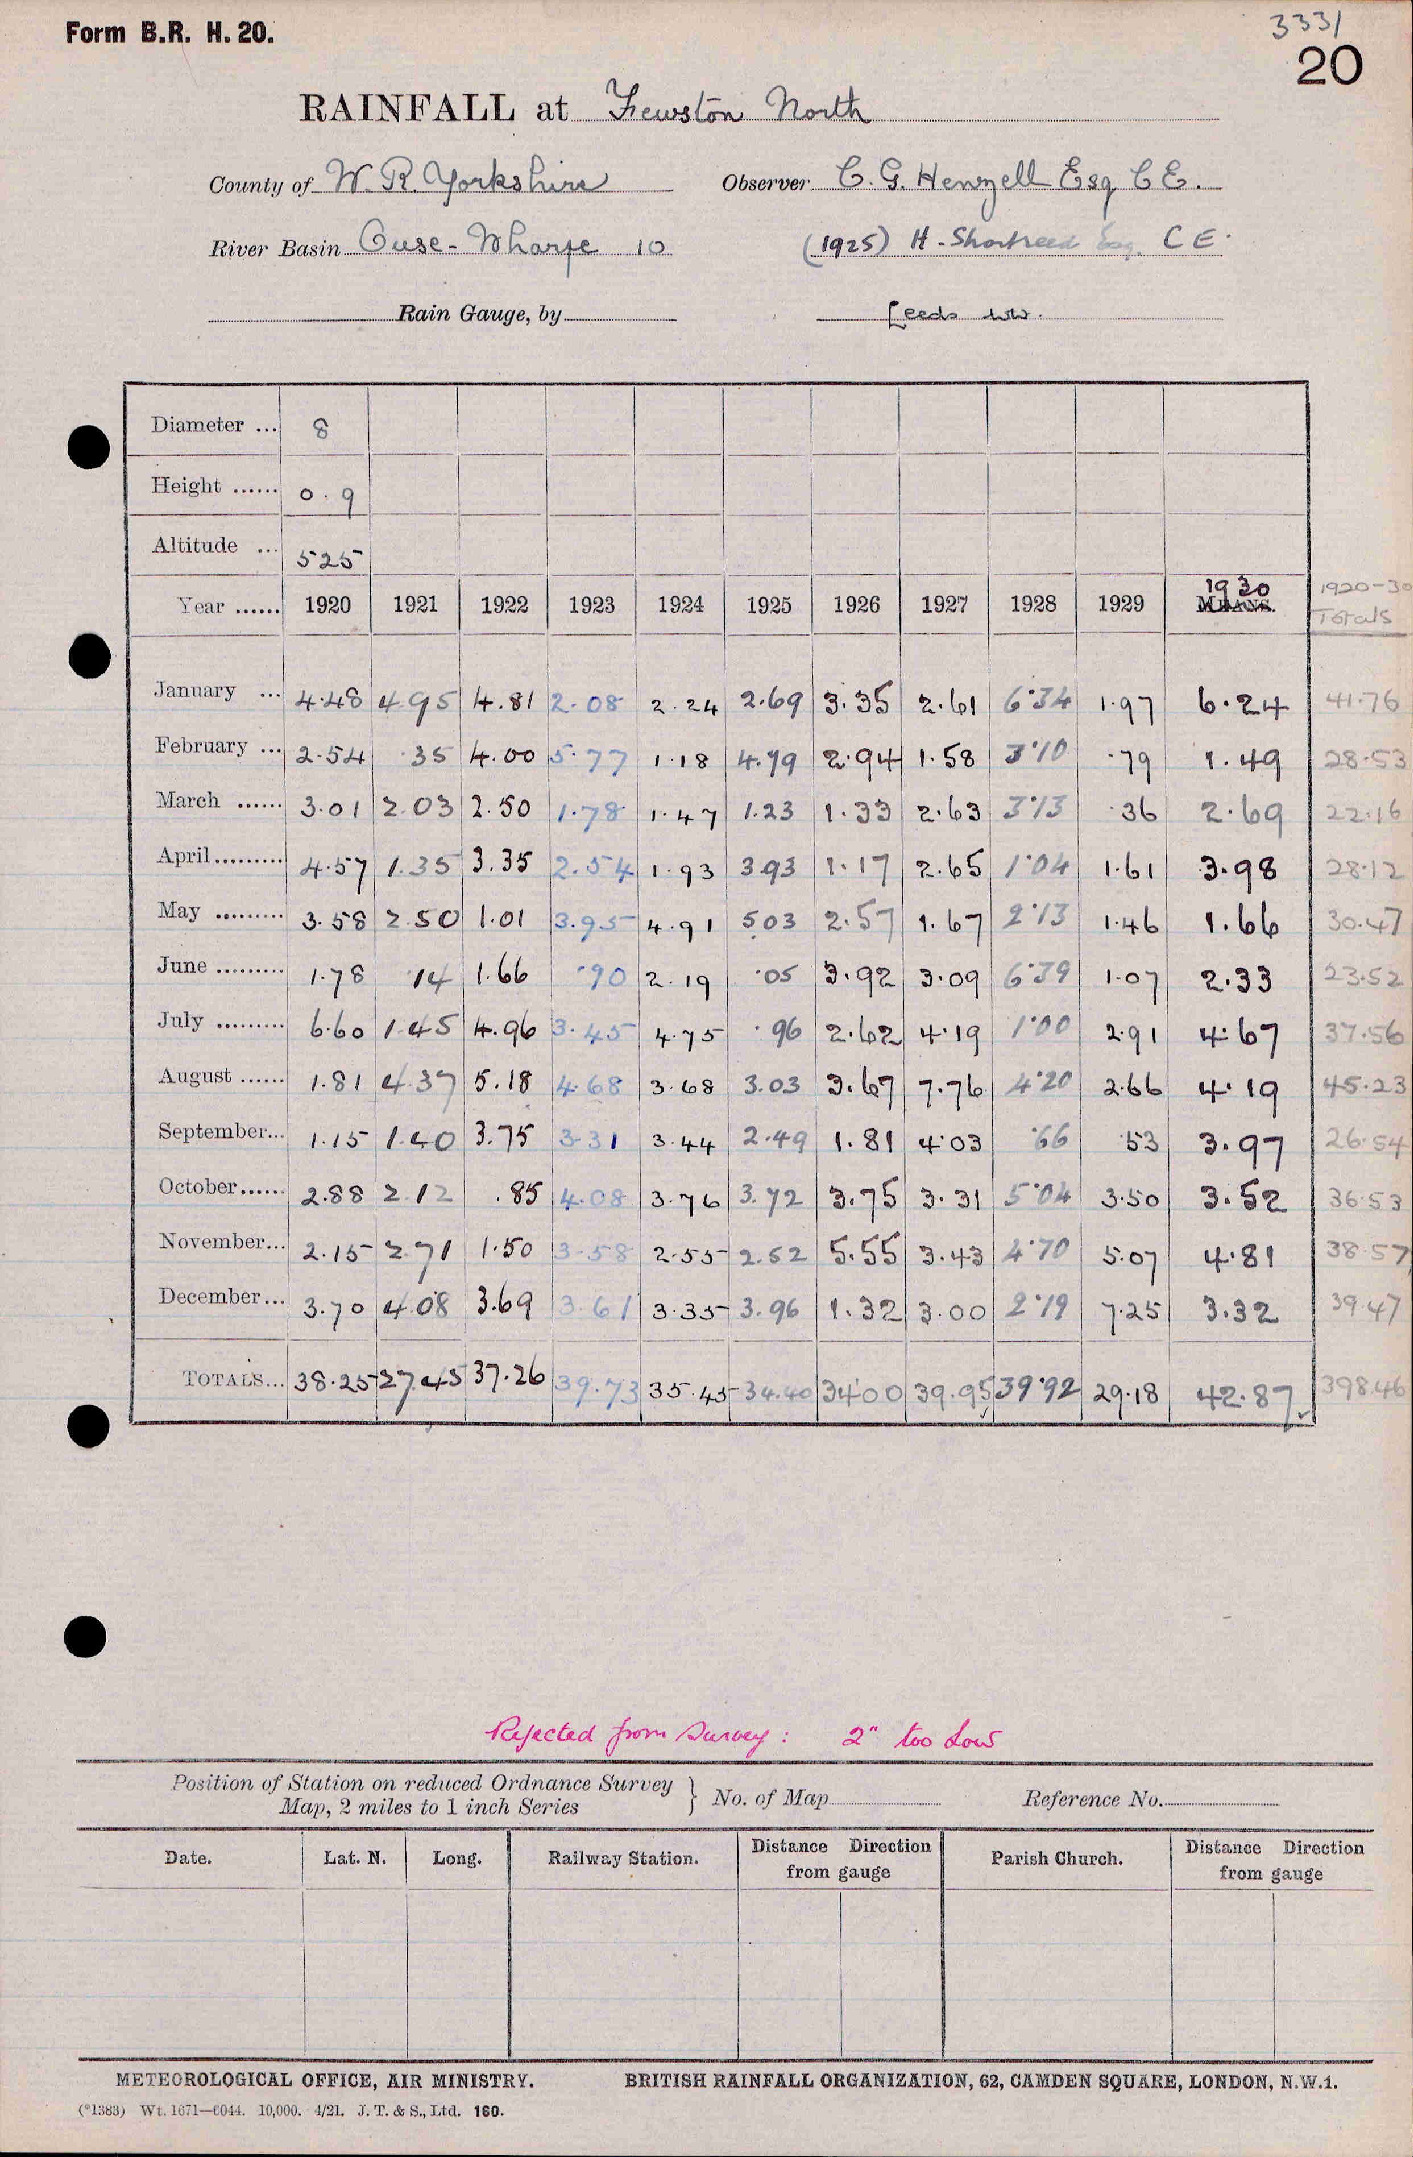 Form B.R. H. 20.
3331
20
RAINFALL at Fewston North
County of W. R. Yorkshire Observer C. G. Henzell Esq C E.
River Basin Ouse - Wharfe 10 (1925) H. Shortreed Esq. C E.
Rain Gauge, by Leeds ww.
Diameter ... 8
Height ...... 0.9
Altitude ... 525
Year ...... 1920 1921 1922 1923 1924 1925 1926 1927 1928 1929 1930 MEANS. 1920-30 Totals
January ... 4.48 4.95 4.81 2.08 2.24 2.69 3.35 2.61 6.34 1.97 6.24 41.76
February ... 2.54 .35 4.00 5.77 1.18 4.79 2.94 1.58 3.10 .79 1.49 28.53
March ...... 3.01 2.03 2.50 1.78 1.47 1.23 1.33 2.63 3.13 .36 2.69 22.16
April ......... 4.57 1.35 3.35 2.54 1.93 3.93 1.17 2.65 1.04 1.61 3.98 28.12
May ......... 3.58 2.50 1.01 3.95 4.91 5.03 2.57 1.67 2.13 1.46 1.66 30.47
June ......... 1.78 .14 1.66 .90 2.19 .05 3.92 3.09 6.39 1.07 2.33 23.52
July ......... 6.60 1.45 4.96 3.45 4.75 .96 2.62 4.19 1.00 2.91 4.67 37.56
August ...... 1.81 4.37 5.18 4.68 3.68 3.03 3.67 7.76 4.20 2.66 4.19 45.23
September... 1.15 1.40 3.75 3.31 3.44 2.49 1.81 4.03 .66 .53 3.97 26.54
October...... 2.88 2.12 .85 4.08 3.76 3.72 3.75 3.31 5.04 3.50 3.52 36.53
November... 2.15 2.71 1.50 3.58 2.55 2.52 5.55 3.43 4.70 5.07 4.81 38.57
December... 3.70 4.08 3.69 3.61 3.35 3.96 1.32 3.00 2.19 7.25 3.32 39.47
TOTALS... 38.25 27.45 37.26 39.73 35.45 34.40 34.00 39.95 39.92 29.18 42.87 398.46
Rejected from Survey : 2" too low
Position of Station on reduced Ordnance Survey
Map, 2 miles to 1 inch Series } No. of Map Reference No.
Date. Lat. N. Long. Railway Station. Distance Direction from gauge Parish Church. Distance Direction from gauge
METEOROLOGICAL OFFICE, AIR MINISTRY. BRITISH RAINFALL ORGANIZATION, 62, CAMDEN SQUARE, LONDON, N.W.1.
(*1383) Wt. 1671—6044. 10,000. 4/21. J. T. & S., Ltd. 160.